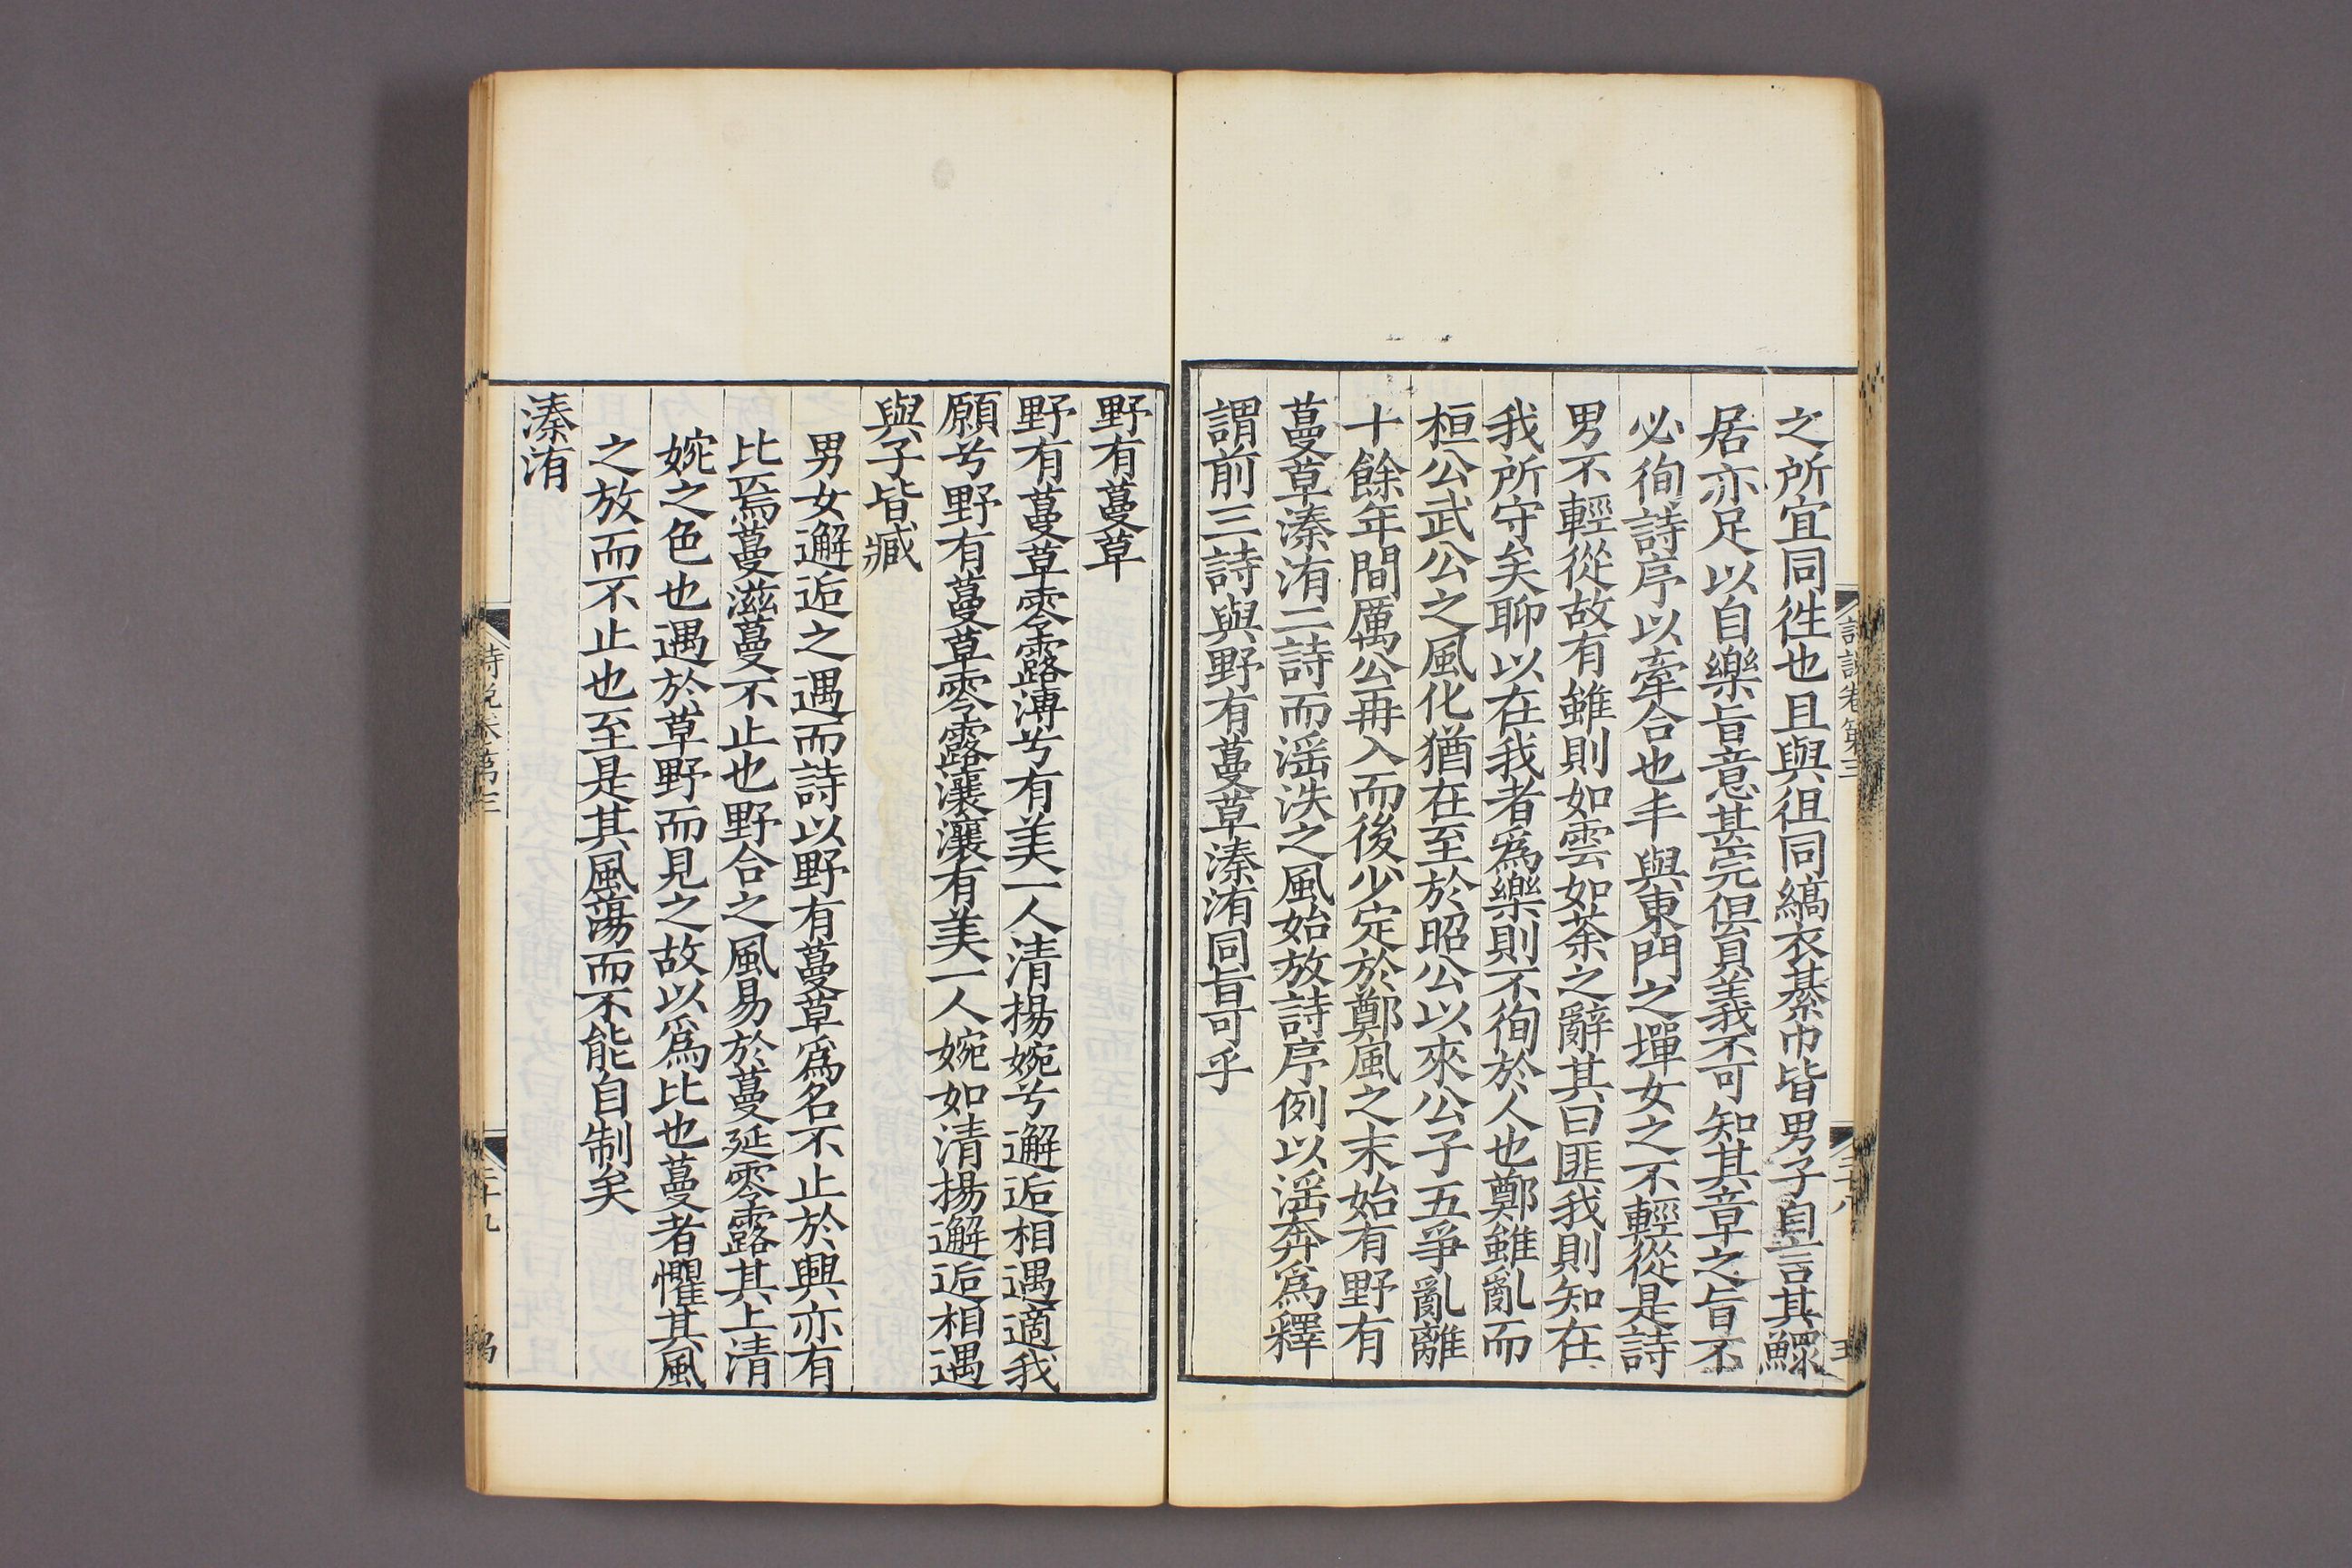 之所宜同徃也且與徂同縞衣綦巾皆男子自言其鰥
居亦足以自樂旨意甚完但員義不可知其章之旨不
必徇詩序以牽合也丰與東門之墠女之不輕從是詩
男不輕從故有雖則如雲如荼之辭其曰匪我則知在
我所守矣聊以在我者爲樂則不徇於人也鄭雖亂而
桓公武公之風化猶在至於昭公以來公子五爭亂離
十餘年間厲公再入而後少定於鄭風之末始有野有
蔓草溱洧二詩而滛泆之風始放詩序例以滛奔爲釋
謂前三詩與野有蔓草溱洧同旨可乎
野有蔓草
野有蔓草零露漙兮有美一人清揚婉兮邂逅相遇適我
願兮野有蔓草零露瀼瀼有美一人婉如清揚邂逅相遇
與子皆臧
男女邂逅之遇而詩以野有蔓草爲名不止於興亦有
比焉蔓滋蔓不止也野合之風易於蔓延零露其上清
婉之色也遇於草野而見之故以爲比也蔓者懼其風
之放而不止也至是其風蕩而不能自制矣
溱洧
詩說卷第三
二十九